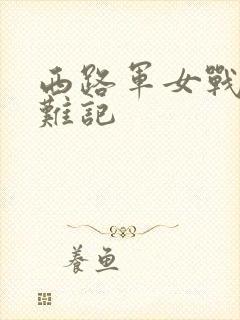 西路軍女戰
難記
養魚